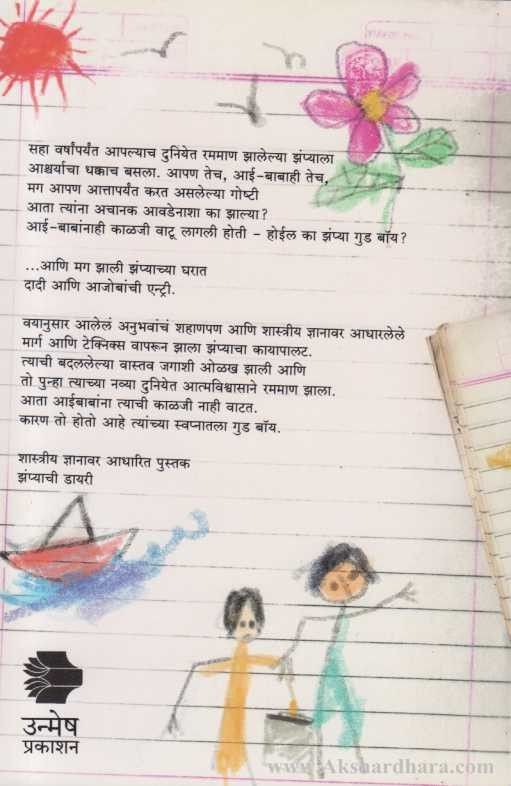 सहा वर्षांपर्यंत आपल्याच दुनियेत रममाण झालेल्या झंप्याला
आश्चर्याचा धक्काच बसला. आपण तेच, आई-बाबाही तेच,
मग आपण आत्तापर्यंत करत असलेल्या गोष्टी
आता त्यांना अचानक आवडेनाशा का झाल्या?
आई-बाबांनाही काळजी वाटू लागली होती - होईल का झंप्या गुड बॉय?
...आणि मग झाली झंप्याच्या घरात
दादी आणि आजोबांची एन्ट्री.
वयानुसार आलेलं अनुभवांचं शहाणपण आणि शास्त्रीय ज्ञानावर आधारलेले
मार्ग आणि टेक्निक्स वापरून झाला झंप्याचा कायापालट.
त्याची बदललेल्या वास्तव जगाशी ओळख झाली आणि
तो पुन्हा त्याच्या नव्या दुनियेत आत्मविश्वासाने रममाण झाला.
आता आईबाबांना त्याची काळजी नाही वाटत.
कारण तो होतो आहे त्यांच्या स्वप्नातला गुड बॉय.
शास्त्रीय ज्ञानावर आधारित पुस्तक
झंप्याची डायरी
उन्मेष
प्रकाशन
www.Akshardhara.com